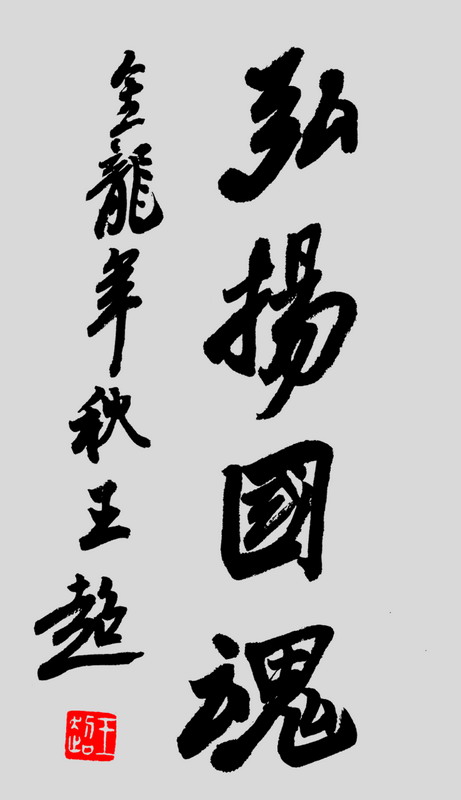 弘揚國魂
金龍年秋王超
王超